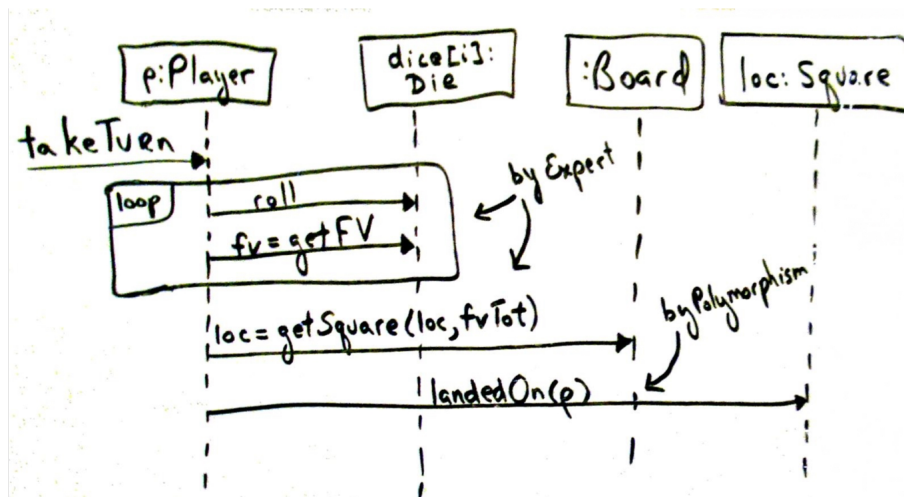 p:Player
dice[i]:
Die
:Board
loc: Square
takeTurn
loop
roll
fv = getFV
by Expert
loc = getSquare(loc, fvTot)
by Polymorphism
landedOn(p)